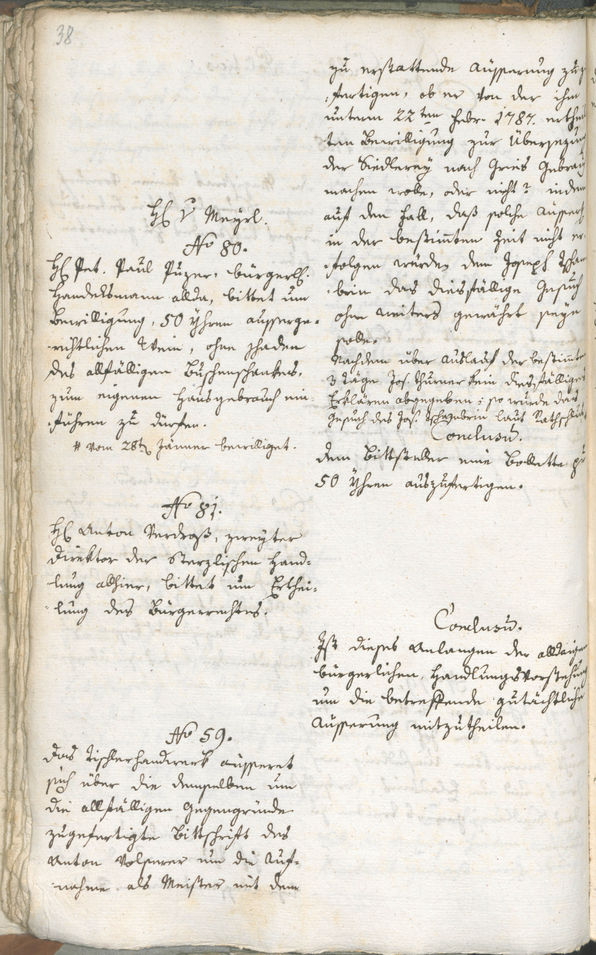 38
H: v Meyrl.
No 80.
H: Pet. Paul Puzer, bürgerl:
Handelsmann allda, bittet um
Bewilligung, 50 Yhren ausserge-
richtlichen Wein, ohne schaden
des allfälligen Buschenschankes,
zum eigenen Hausgebrauch ein-
führen zu dürfen.
# vom 28t Jänner bewilliget.
No 81.
H: Anton Verdroß, zweyter
Direktor der Sterzlischen Hand-
lung allhier, bittet um Erthei-
lung des Bürgerrechtes.
No 59.
Das Tischlerhandwerk äusseret
sich über die demselben um
die allfälligen Gegengründe
zugefertigte Bittschrift des
Anton um die Auf-
nahme als Meister mit dem
zu erstattende Äusserung zu
fertigen, ob er von der ihm
unterm 22ten Febr. 1787. erthei
ten Bewilligung zur Übersezung
der Siedlerey nach Gries Gebrauch
machen wolle, oder nicht? indem
auf den Fall, daß solche Äusserung
in der bestimmten Zeit nicht er-
folgen würde, dem Joseph
das diesfällige Gesuch
ohne weiters gewährt seyn
solle.
Nachdem über Auslauf der bestimmten
3 Täge Jos. Thurner kein diesfälliges
Erklären abgegeben; so wurde das
Gesuch des Jos. laut Rathschluß
Conclusum.
dem Bittsteller eine Bollette pr
50 Yhren auszufertigen.
Conclusum.
Ist dieses Anlangen der alldaigen
bürgerlichen Handlungsvorstehung
um die betreffende gutächtliche
Äusserung mitzutheilen.